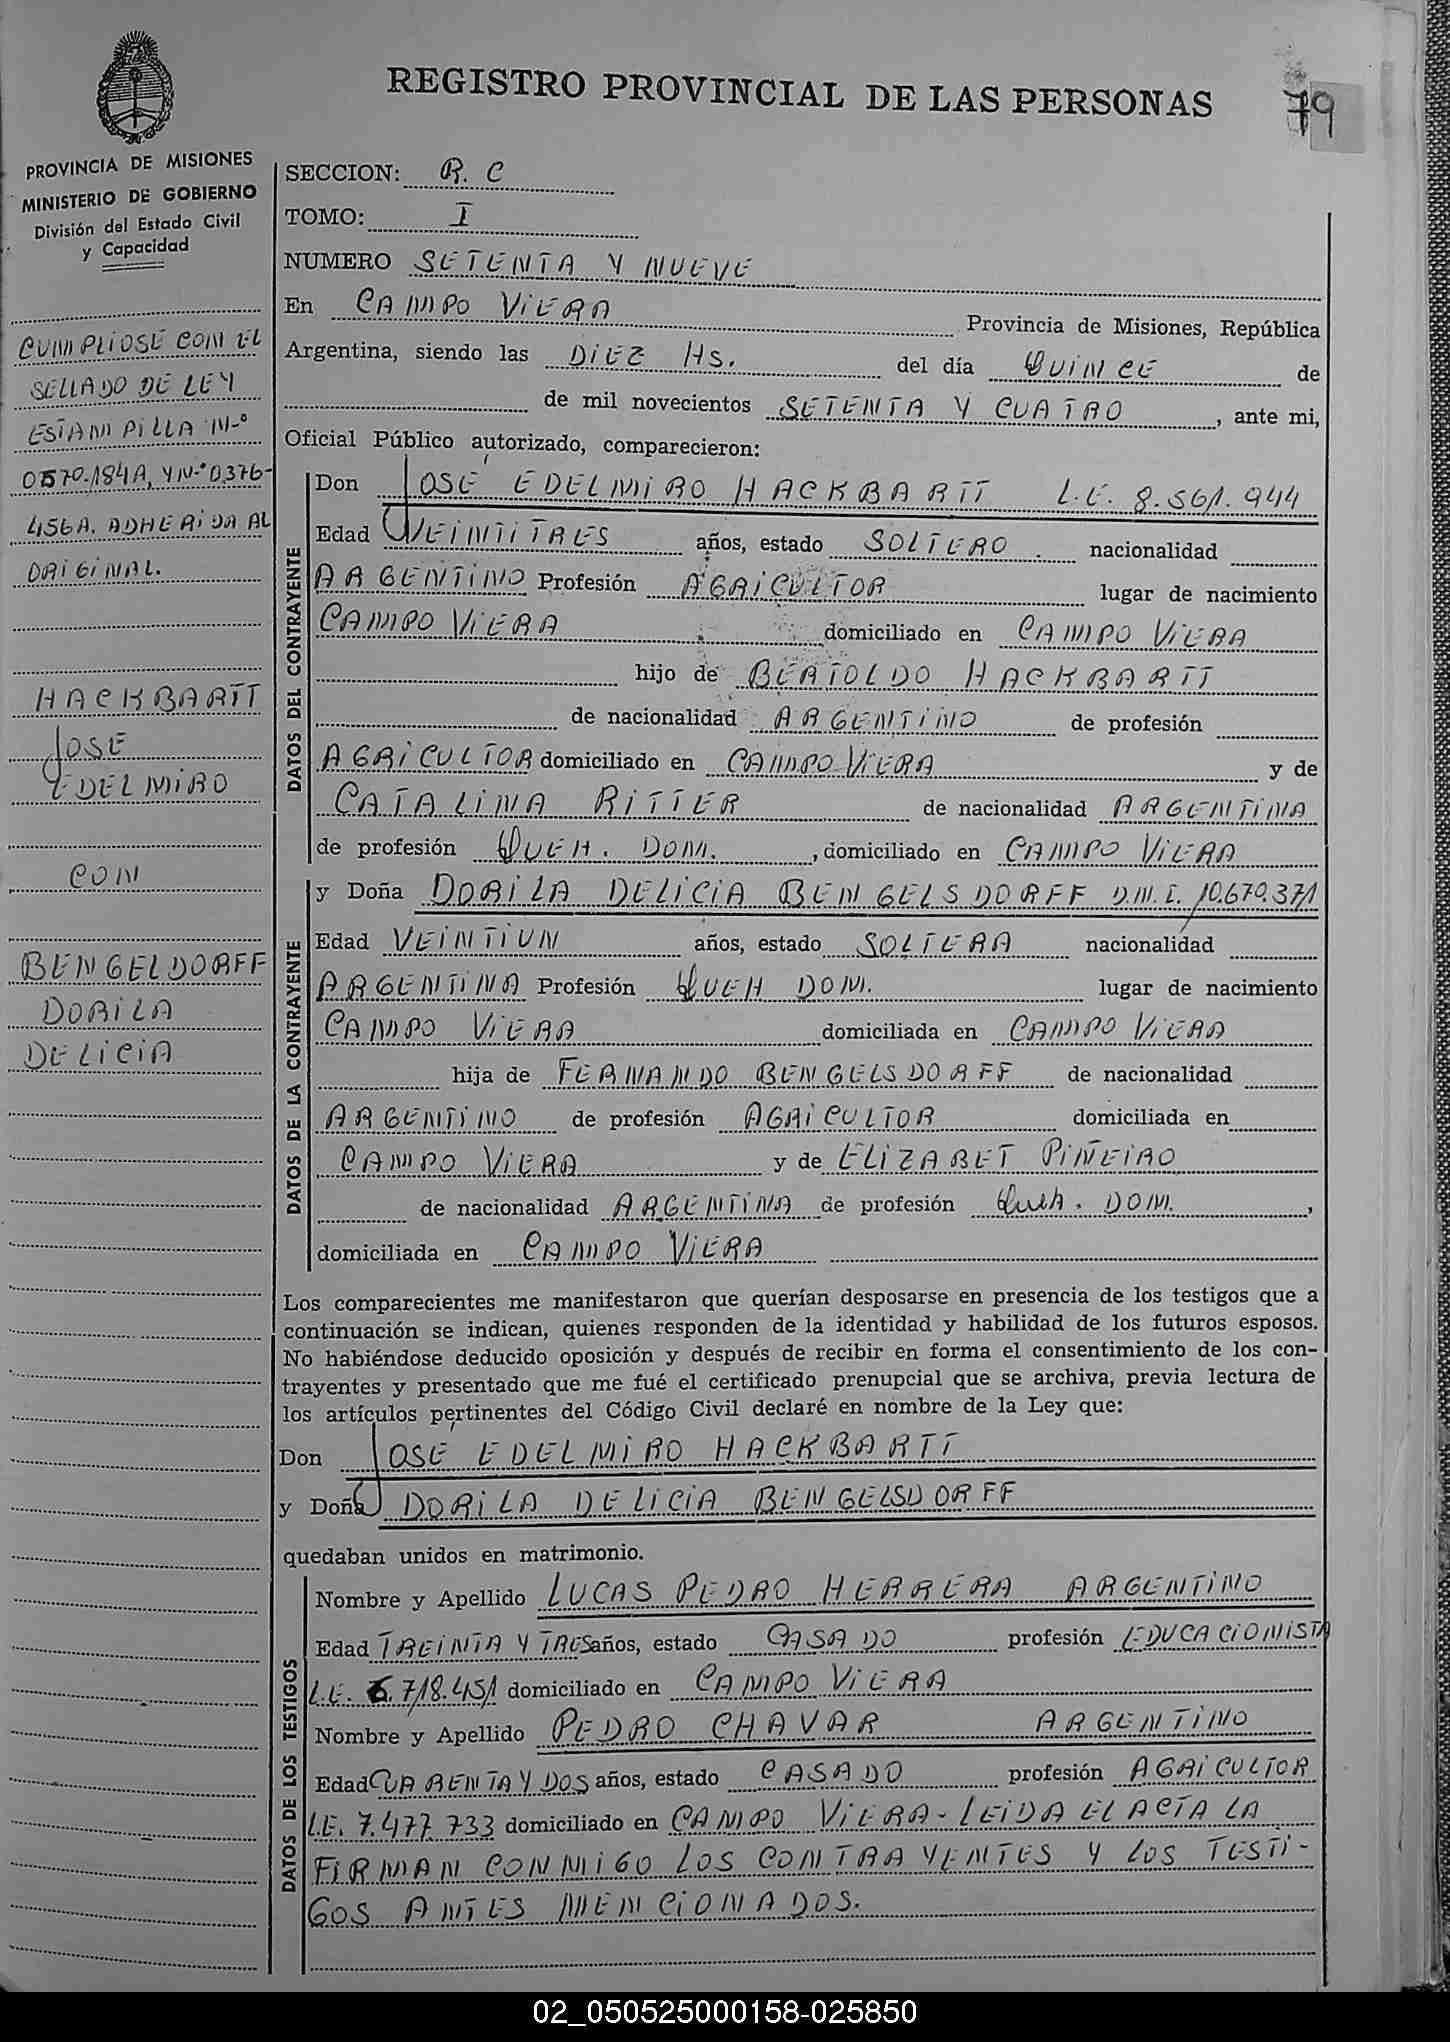 REGISTRO PROVINCIAL DE LAS PERSONAS
79
PROVINCIA DE MISIONES
MINISTERIO DE GOBIERNO
División del Estado Civil
y Capacidad
CUMPLIOSE CON EL
SELLADO DE LEY
ESTAMPILLA N-º
0570.184A, Y N-º 0376-
456A. ADHERIDA AL
ORIGINAL.
HACKBARTT
JOSE
EDELMIRO
CON
BENGELDORFF
DORILA
DELICIA
SECCION: R. C
TOMO: I
NUMERO SETENTA Y NUEVE
En CAMPO VIERA Provincia de Misiones, República
Argentina, siendo las DIEZ HS. del día QUINCE de
de mil novecientos SETENTA Y CUATRO, ante mi,
Oficial Público autorizado, comparecieron:
DATOS DEL CONTRAYENTE
Don JOSÉ EDELMIRO HACKBARTT L.E. 8.561.944
Edad VEINTITRES años, estado SOLTERO. nacionalidad
ARGENTINO Profesión AGRICULTOR lugar de nacimiento
CAMPO VIERA domiciliado en CAMPO VIERA
hijo de BERTOLDO HACKBARTT
de nacionalidad ARGENTINO de profesión
AGRICULTOR domiciliado en CAMPO VIERA y de
CATALINA RITTER de nacionalidad ARGENTINA
de profesión QUEH. DOM. , domiciliado en CAMPO VIERA
DATOS DE LA CONTRAYENTE
y Doña DORILA DELICIA BENGELSDORFF D.N.I. 10.670.371
Edad VEINTIUN años, estado SOLTERA nacionalidad
ARGENTINA Profesión QUEH DOM. lugar de nacimiento
CAMPO VIERA domiciliada en CAMPO VIERA
hija de FERNANDO BENGELSDORFF de nacionalidad
ARGENTINO de profesión AGRICULTOR domiciliada en
CAMPO VIERA y de ELIZABET PIÑEIRO
de nacionalidad ARGENTINA de profesión Queh. DOM. ,
domiciliada en CAMPO VIERA
Los comparecientes me manifestaron que querían desposarse en presencia de los testigos que a
continuación se indican, quienes responden de la identidad y habilidad de los futuros esposos.
No habiéndose deducido oposición y después de recibir en forma el consentimiento de los con-
trayentes y presentado que me fué el certificado prenupcial que se archiva, previa lectura de
los artículos pertinentes del Código Civil declaré en nombre de la Ley que:
Don JOSÉ EDELMIRO HACKBARTT
y Doña DORILA DELICIA BENGELSDORFF
quedaban unidos en matrimonio.
DATOS DE LOS TESTIGOS
Nombre y Apellido LUCAS PEDRO HERRERA ARGENTINO
Edad TREINTA Y TRES años, estado CASADO profesión EDUCACIONISTA
L.E. 6.718.451 domiciliado en CAMPO VIERA
Nombre y Apellido PEDRO CHAVAR ARGENTINO
Edad CUARENTA Y DOS años, estado CASADO profesión AGRICULTOR
L.E. 7.477.733 domiciliado en CAMPO VIERA - LEIDA EL ACTA LA
FIRMAN CONMIGO LOS CONTRAYENTES Y LOS TESTI-
GOS ANTES MENCIONADOS.
02_050525000158-025850